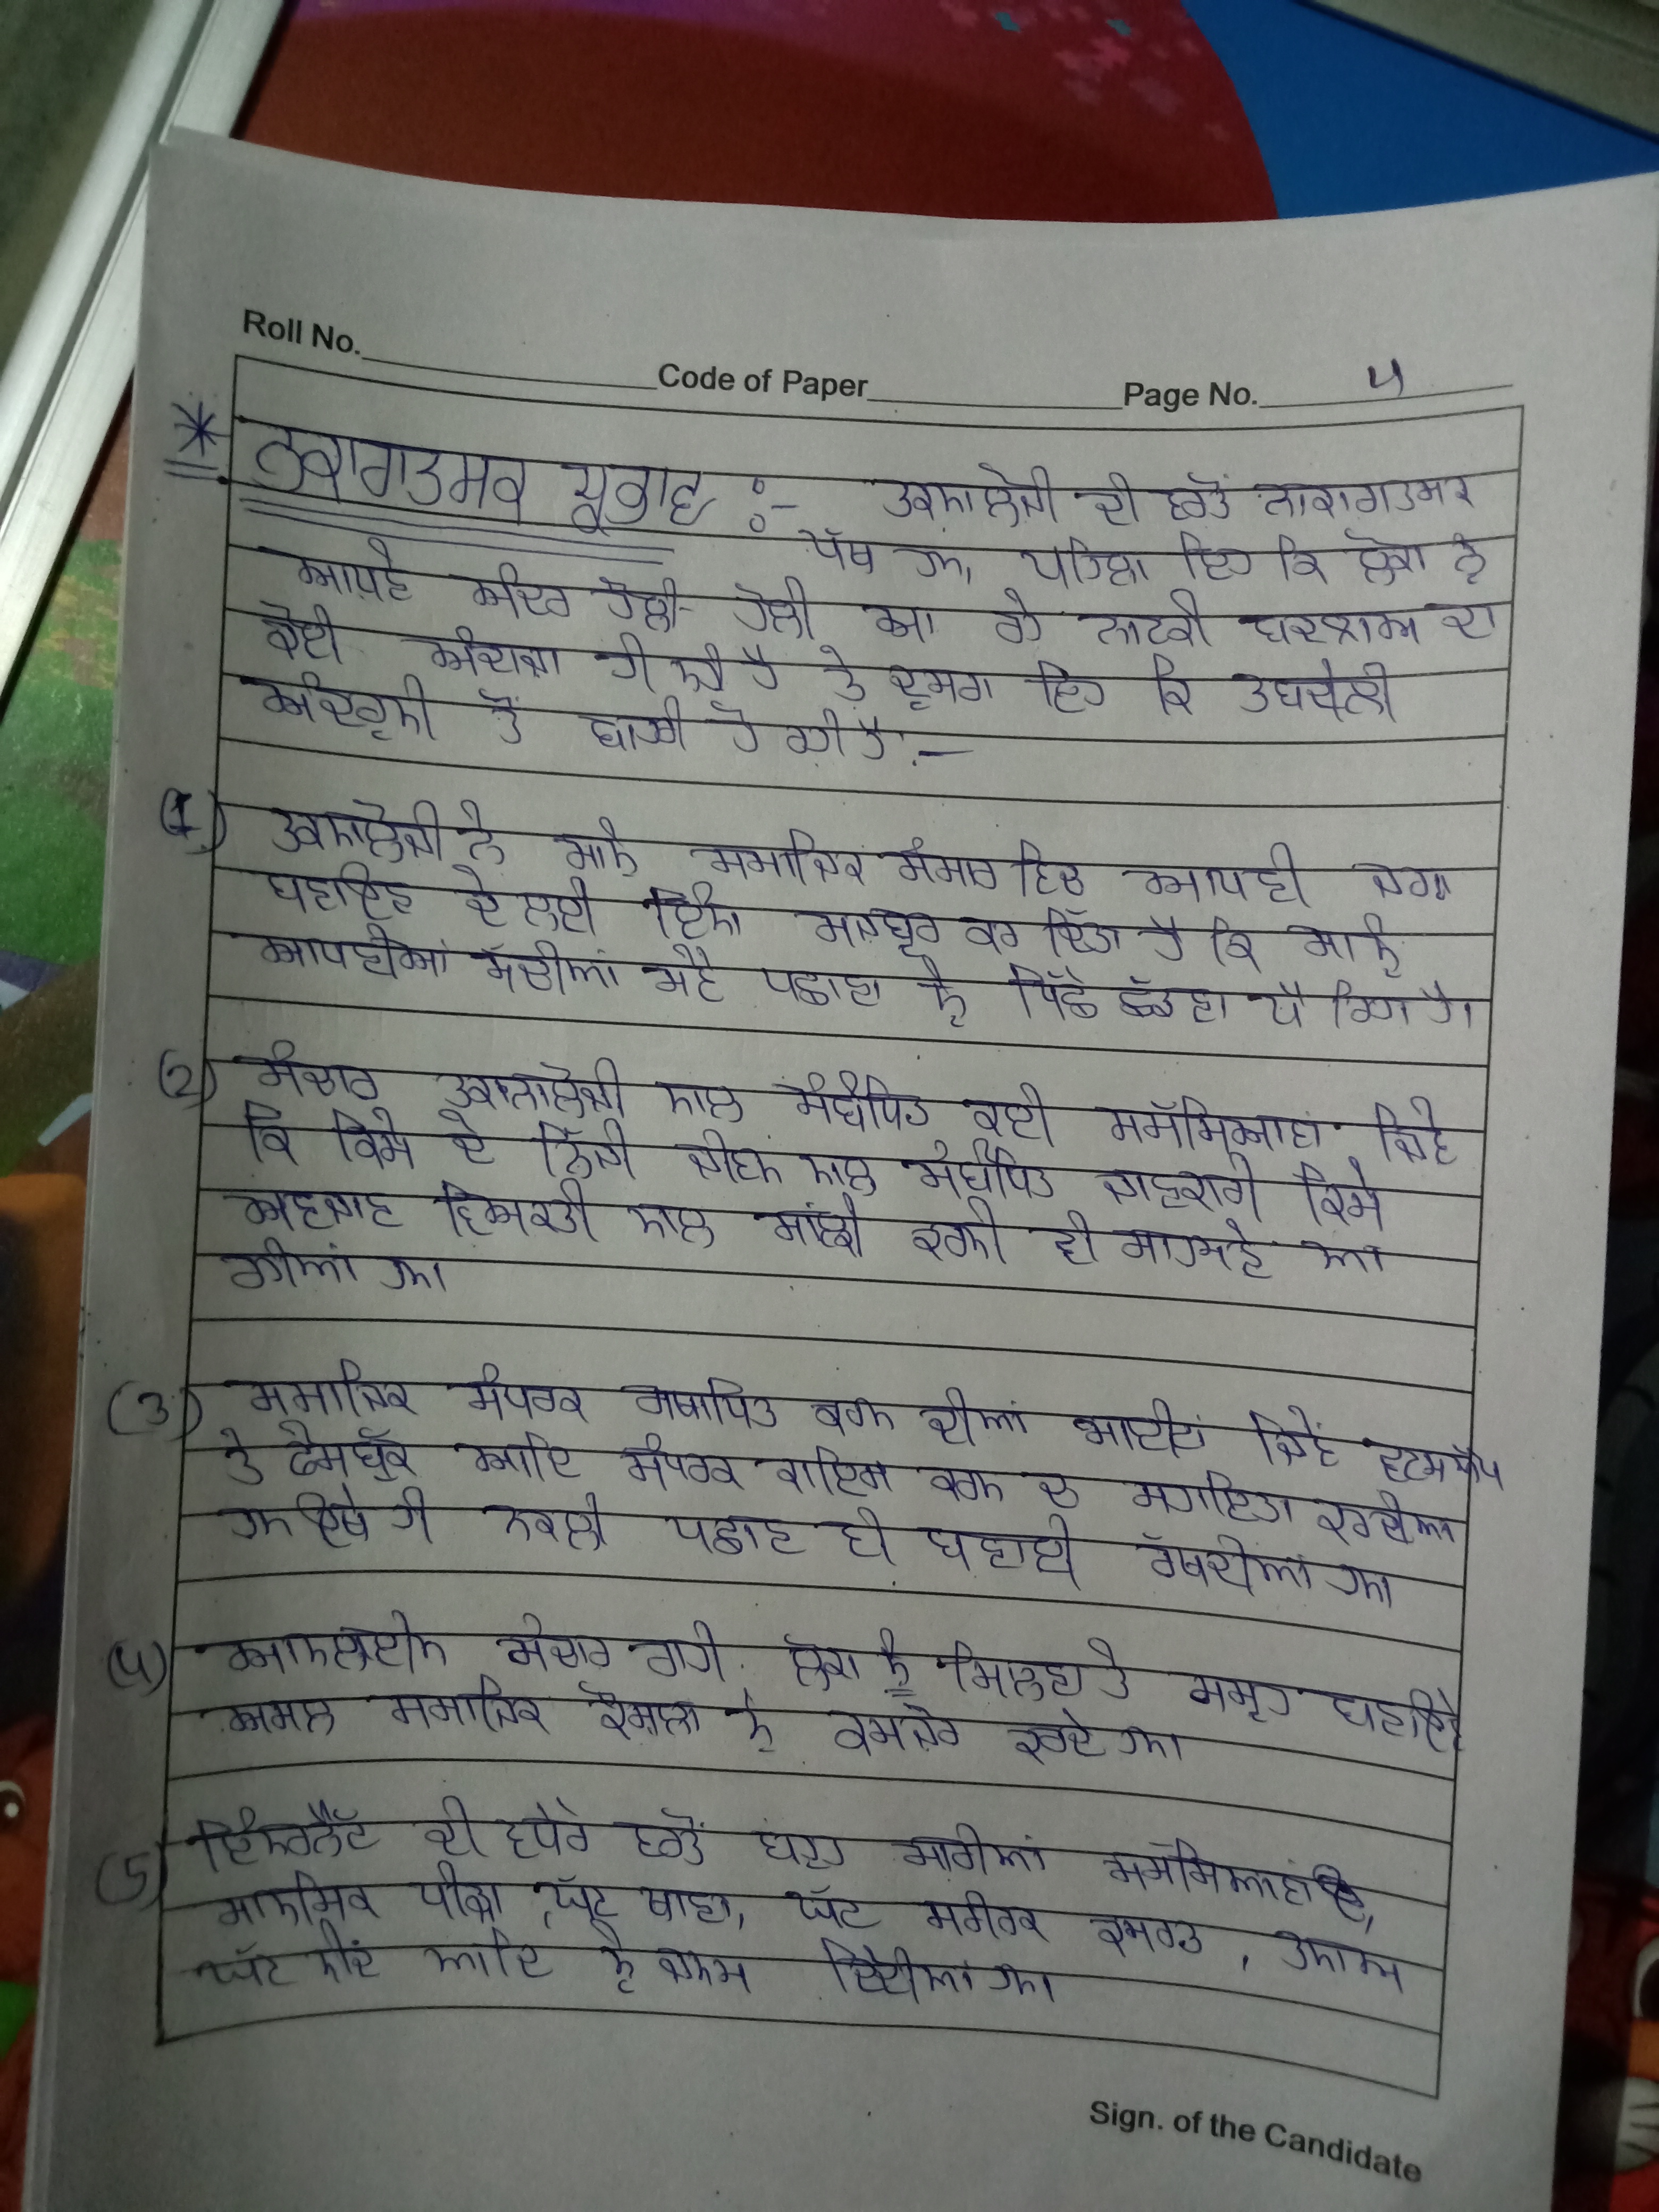 Roll No. Code of Paper Page No. 4
* ਨਕਾਰਾਤਮਕ ਪ੍ਰਭਾਵ :- ਤਕਨਾਲੋਜੀ ਦੀ ਵਰਤੋਂ ਨਾਕਾਰਾਤਮਕ
ਪੱਖ ਹਨ, ਪਹਿਲਾ ਇਹ ਕਿ ਲੋਕਾ ਨੂੰ
ਆਪਣੇ ਅੰਦਰ ਹੌਲੀ-ਹੌਲੀ ਆ ਰਹੇ ਨਾਟਕੀ ਬਦਲਾਅ ਦਾ
ਕੋਈ ਅੰਦਾਜ਼ਾ ਹੀ ਨਹੀਂ ਹੈ ਤੇ ਦੂਸਰਾ ਇਹ ਕਿ
ਅੰਦਰੂਨੀ ਤੌਂ ਬਾਗੀ ਹੋ ਗਈ ਹੈ:-
(1) ਤਕਨਾਲੋਜੀ ਨੇ ਸਾਨੂੰ ਸਮਾਜਿਕ ਸੰਸਾਰ ਵਿਚ ਆਪਣੀ ਜਗਾ
ਬਣਾਉਣ ਦੇ ਲਈ ਇੰਨਾ ਮਜਬੂਰ ਕਰ ਦਿੱਤਾ ਹੈ ਕਿ ਸਾਨੂੰ
ਆਪਣੀਆਂ ਸੱਚੀਆਂ ਨੂੰ ਪਿੱਛੇ ਛੱਡਣਾ ਪੈ ਗਿਆ ਹੈ।
(2) ਸੰਚਾਰ ਤਕਨਾਲੋਜੀ ਨਾਲ ਸੰਬੰਧਿਤ ਕਈ ਸਮੱਸਿਆਵਾਂ ਜਿਵੇਂ
ਕਿ ਕਿਸੇ ਦੇ ਨਿੱਜੀ ਜੀਵਨ ਨਾਲ ਸੰਬੰਧਿਤ ਜਾਣਕਾਰੀ ਕਿਸੇ
ਅਣਜਾਣ ਵਿਅਕਤੀ ਨਾਲ ਸਾਂਝੀ ਕਰਨੀ ਵੀ ਸਾਹਮਣੇ ਆ
ਗਈਆਂ ਹਨ।
(3) ਸਮਾਜਿਕ ਸੰਪਰਕ ਸਥਾਪਿਤ ਕਰਨ ਦੀਆਂ ਸਾਈਟਾਂ ਜਿਵੇਂ ਵਟਸਐਪ
ਤੇ ਫੇਸਬੁੱਕ ਆਦਿ ਸੰਪਰਕ ਕਾਇਮ ਕਰਨ ਚ ਸਹਾਇਤਾ ਕਰਦੀਆਂ
ਹਨ ਉਥੇ ਹੀ ਨਕਲੀ ਪਛਾਣ ਵੀ ਬਣਾਈ ਰੱਖਦੀਆਂ ਹਨ।
(4) ਆਨਲਾਈਨ ਸੰਚਾਰ ਰਾਹੀਂ ਲੋਕਾ ਨੂੰ ਮਿਲਣਾ ਤੇ ਸਮੂਹ ਬਣਾਉਣੇ
ਅਸਲ ਸਮਾਜਿਕ ਕੌਸ਼ਲਾ ਨੂੰ ਕਮਜੋਰ ਕਰਦੇ ਹਨ।
(5) ਇੰਟਰਨੈੱਟ ਦੀ ਵਧੇਰੇ ਵਰਤੋਂ ਬਹੁਤ ਸਾਰੀਆਂ ਸਮੱਸਿਆਵਾਂ
ਮਾਨਸਿਕ ਪੀੜਾ, ਘੱਟ ਖਾਣਾ, ਘੱਟ ਸਰੀਰਕ ਕਸਰਤ, ਤਨਾਅ
ਘੱਟ ਨੀਂਦ ਆਦਿ ਨੂੰ ਜਨਮ ਦਿੰਦੀਆਂ ਹਨ।
Sign. of the Candidate